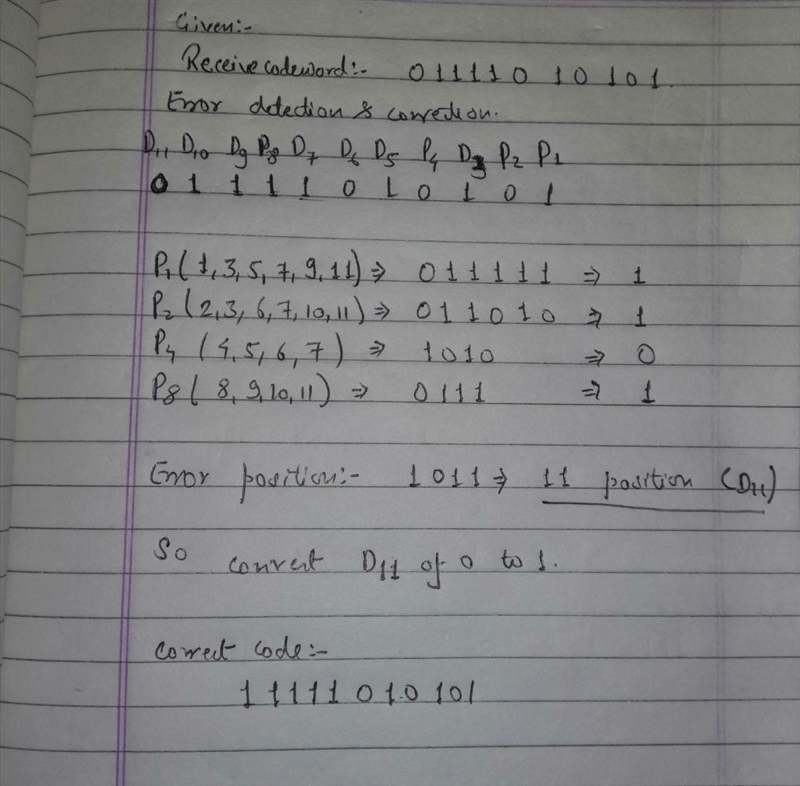 Given:-
Receive codeword:- 01111010101.
Error detection & correction.
D₁₁ D₁₀ D₉ P₈ D₇ D₆ D₅ P₄ D₃ P₂ P₁
0 1 1 1 1 0 1 0 1 0 1
P₁ (1,3,5,7,9,11) ⇒ 011111 ⇒ 1
P₂ (2,3,6,7,10,11) ⇒ 011010 ⇒ 1
P₄ (4,5,6,7) ⇒ 1010 ⇒ 0
P8 (8,9,10,11) ⇒ 0111 ⇒ 1
Error position:- 1011 ⇒ 11 position (D₁₁)
So convert D₁₁ of 0 to 1.
Correct code:-
11111010101